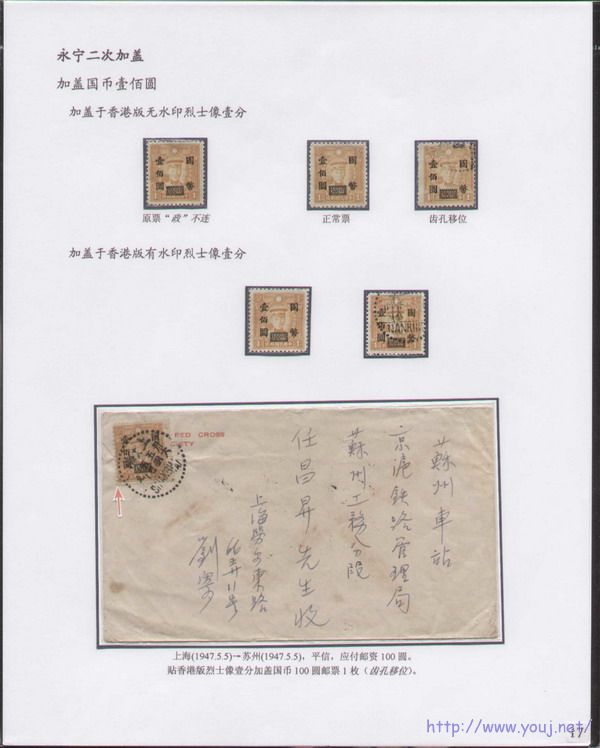 永宁二次加盖
加盖国币壹佰圆
加盖于香港版无水印烈士像壹分
国币
壹佰圆
国币
壹佰圆
国币
壹佰圆
原票“政”不连
正常票
齿孔移位
加盖于香港版有水印烈士像壹分
國幣
壹佰圓
國幣
壹佰圓
RED CROSS
蘇州車站
京滬鉄路管理局
蘇州工務分段
任昌昇先生收
上海
東路
劉
上海(1947.5.5)→苏州(1947.5.5)，平信，应付邮资100圆。
贴香港版烈士像壹分加盖国币100圆邮票1枚(齿孔移位)。
17
http://www.youj.net/